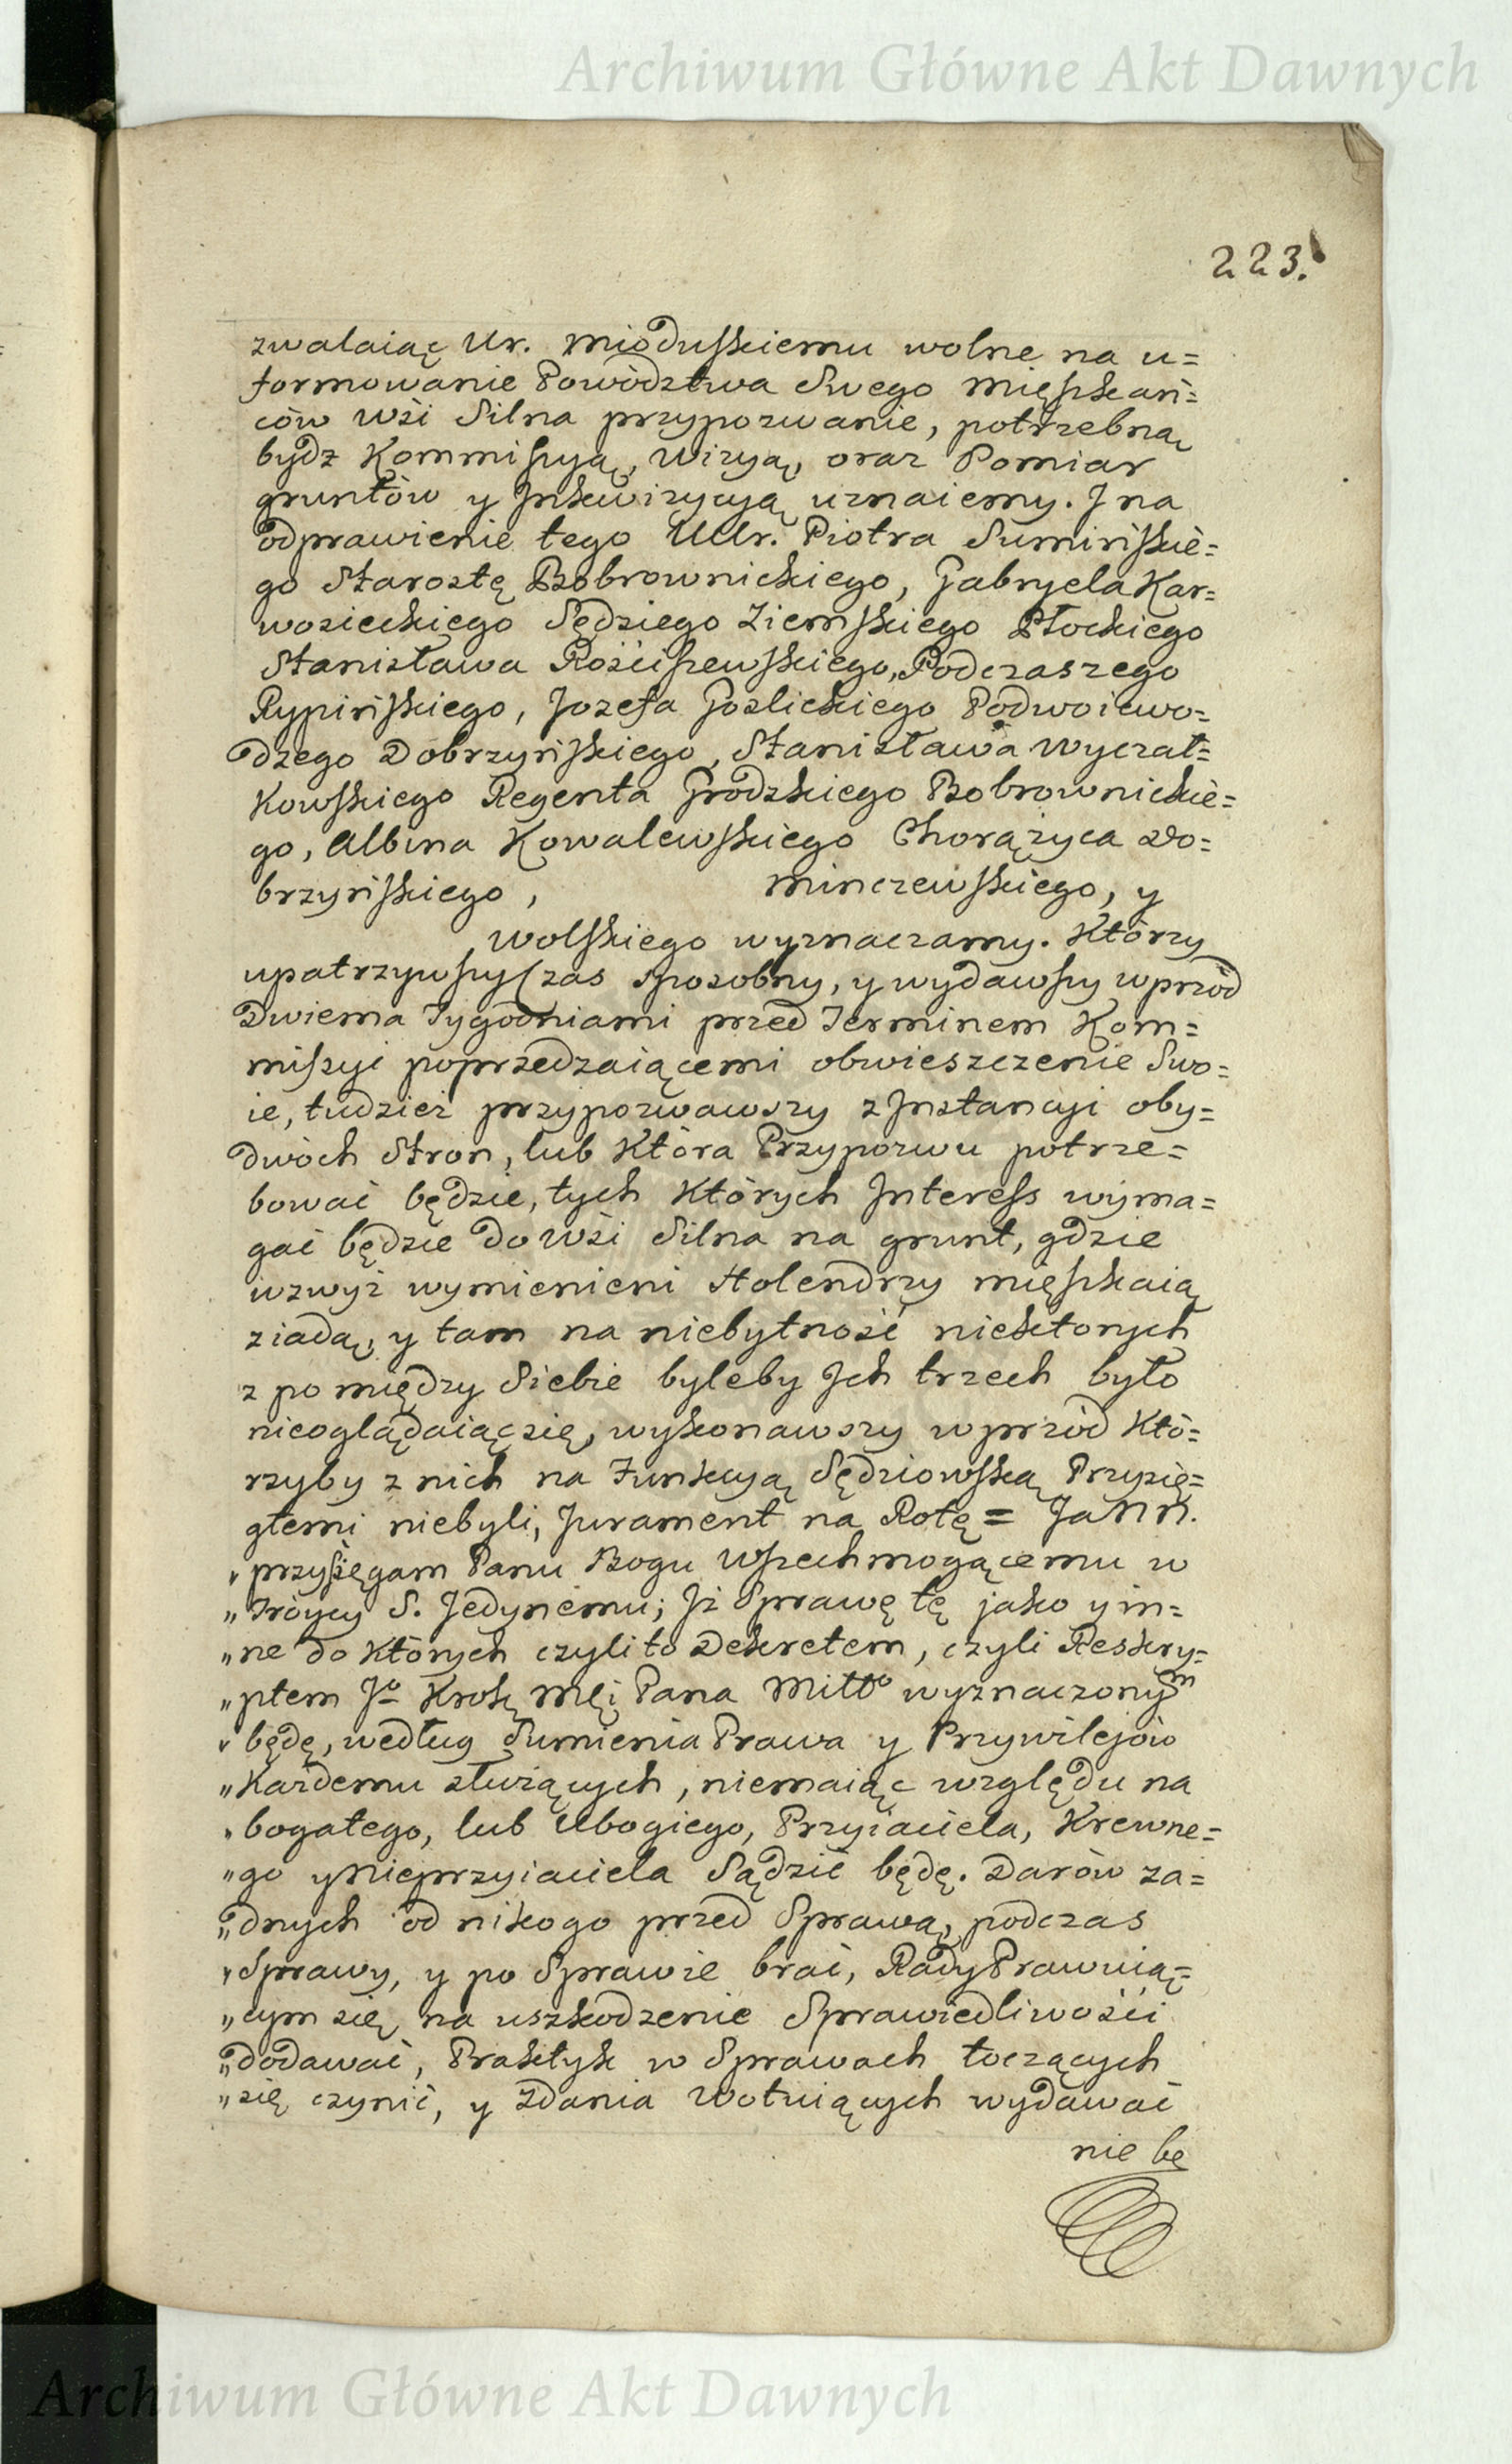 Archiwum Główne Akt Dawnych
223.
zwalaiąc Ur. Mioduskiemu wolne na u=
formowanie Powództwa Swego Mięszkań=
ców Wśi Silna przypozwanie, potrzebną
bydz Kommissyą, Wizyą, oraz Pomiar
gruntów y Inkwizycyą uznaiemy. I na
odprawienie tego UUr. Piotra Sumińskie=
go Starostę Bobrownickiego, Gabryela Kar=
wosieckiego Sędziego Ziemskiego Płockiego
Stanisława Rościszewskiego, Podczaszego
Rypińskiego, Jozefa Goslickiego Podwoiewo=
dzego Dobrzyńskiego, Stanisława Wyczał=
kowskiego Regenta Grodzkiego Bobrownickie=
go, Albina Kowalewskiego Chorążyca Do=
brzyńskiego, Minczewskiego, y
Wolskiego wyznaczamy. Którzy
upatrzywszy Czas sposobny, y wydawszy wprzód
Dwiema Tygodniami przed Terminem Kom=
missyi poprzedzaiącemi obwieszczenie Swo=
ie, tudzież przypozwawszy z Instancyi oby=
dwóch Stron, lub Która Przypozwu potrze=
bować będzie, tych Których Interess wyma=
gać będzie do Wśi Silna na grunt, gdzie
wzwyż wymienieni Holendrzy mięszkaią
ziadą, y tam na niebytność niektorych
z po między Siebie byleby Ich trzech było
nieoglądaiąc się, wykonawszy wprzód Któ=
rzyby z nich na Funkcyą Sędziowską Przysię=
głemi niebyli, Jurament na Rotę = Ja NN.
„przysięgam Panu Bogu Wszechmogącemu w
„Tróycy S. Jedynemu; Iż Sprawę tę jako y in=
„ne do Których czyli to Dekretem, czyli Reskry=
„ptem Jo Krolę Mći Pana Miłło wyznaczonym
„będę, według Sumienia Prawa y Przywilejów
„Każdemu służących, niemaiąc względu na
„bogatego, lub Ubogiego, Przyiaciela, Krewne=
„go y Nieprzyiaciela Sądzić będę. Darów ża=
„dnych od nikogo przed Sprawą, podczas
„Sprawy, y po Sprawie brać, Rady Prawuią=
„cym się na uszkodzenie Sprawiedliwości
„dodawać, Praktyk w Sprawach toczących
„się czynić, y Zdania Wotuiących wydawać
nie bę
Archiwum Główne Akt Dawnych